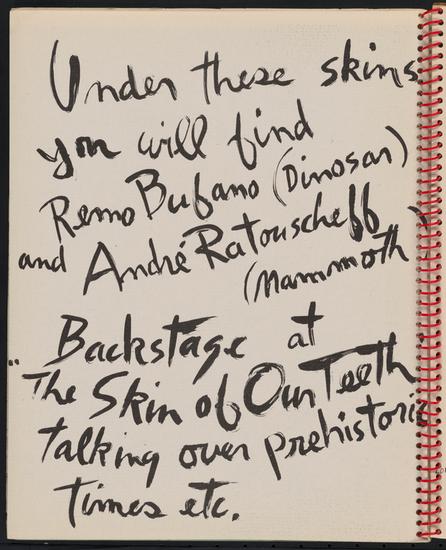 Under these skins
you will find
Remo Bufano (Dinosar)
and André Ratouscheff
(Mammoth)
Backstage at
"The Skin of Our Teeth
talking over prehistoric
times etc.